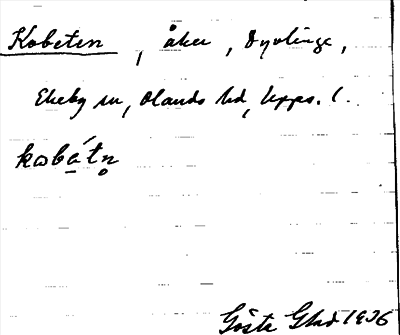 Kobeten, åker, Dyvlinge,
Ekeby sn, Olands hd, Upps. l.
kωbátn̥
Gösta Glad 1936